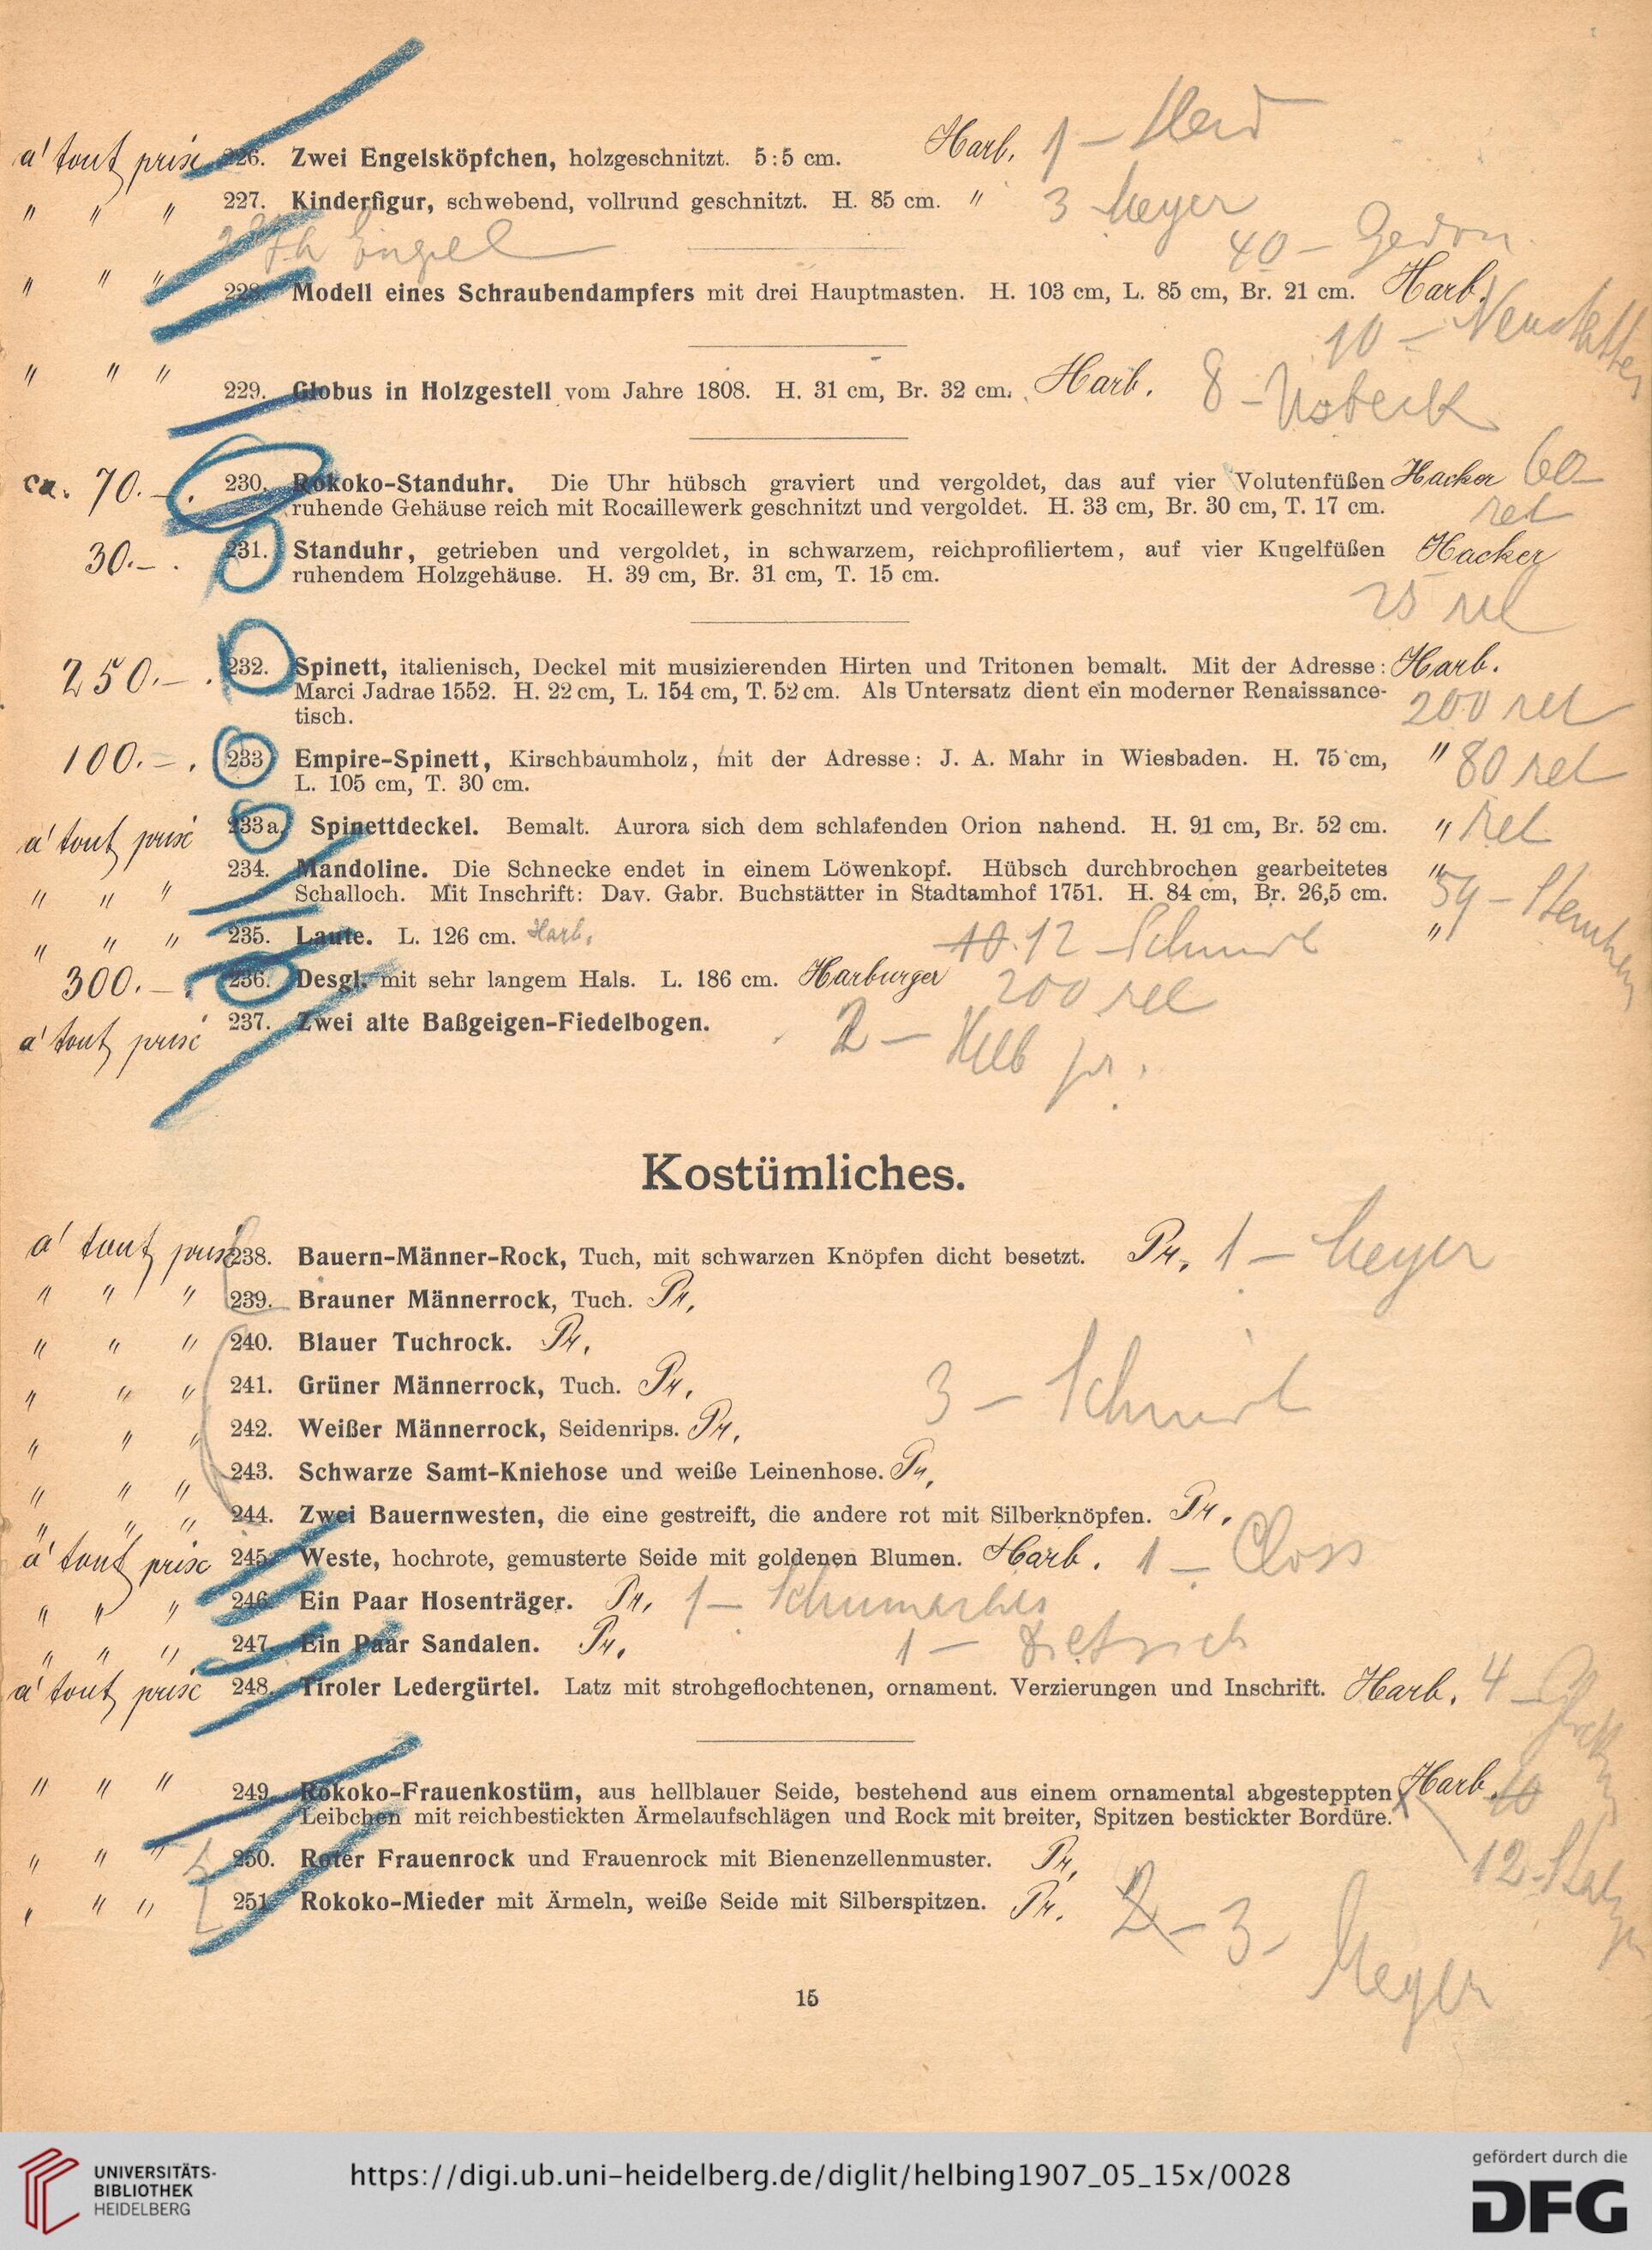 à tout prix 226. Zwei Engelsköpfchen, holzgeschnitzt. 5:5 cm. Harb. 1 –
" " " 227. Kinderfigur, schwebend, vollrund geschnitzt. H. 85 cm. " 3 Meyer
Engel 40 – Gedon
" " " 228. Modell eines Schraubendampfers mit drei Hauptmasten. H. 103 cm, L. 85 cm, Br. 21 cm. Harb.
10 – Neustätter
" " " 229. Globus in Holzgestell vom Jahre 1808. H. 31 cm, Br. 32 cm. Harb. 8 –
ca. 70.– . 230. Rokoko-Standuhr. Die Uhr hübsch graviert und vergoldet, das auf vier Volutenfüßen Hacker 60
ruhende Gehäuse reich mit Rocaillewerk geschnitzt und vergoldet. H. 33 cm, Br. 30 cm, T. 17 cm. ret
30.– . 231. Standuhr, getrieben und vergoldet, in schwarzem, reichprofiliertem, auf vier Kugelfüßen Hacker
ruhendem Holzgehäuse. H. 39 cm, Br. 31 cm, T. 15 cm.
25 ret
250.– . 232. Spinett, italienisch, Deckel mit musizierenden Hirten und Tritonen bemalt. Mit der Adresse: Harb.
Marci Jadrae 1552. H. 22 cm, L. 154 cm, T. 52 cm. Als Untersatz dient ein moderner Renaissance- 200 ret
tisch.
100.– . 233 Empire-Spinett, Kirschbaumholz, mit der Adresse: J. A. Mahr in Wiesbaden. H. 75 cm, " 80 ret
L. 105 cm, T. 30 cm.
à tout prix 233a. Spinettdeckel. Bemalt. Aurora sich dem schlafenden Orion nahend. H. 91 cm, Br. 52 cm. " ret
234. Mandoline. Die Schnecke endet in einem Löwenkopf. Hübsch durchbrochen gearbeitetes "
" " " Schalloch. Mit Inschrift: Dav. Gabr. Buchstätter in Stadtamhof 1751. H. 84 cm, Br. 26,5 cm. 59 –
" " " 235. Laute. L. 126 cm. Harb. 10. 12 – "
300.– . 236. Desgl. mit sehr langem Hals. L. 186 cm. Harburger 200 ret
à tout prix 237. Zwei alte Baßgeigen-Fiedelbogen. 2 –
Kostümliches.
à tout prix 238. Bauern-Männer-Rock, Tuch, mit schwarzen Knöpfen dicht besetzt. Pr. 1 – Meyer
" " " 239. Brauner Männerrock, Tuch. Pr.
" " " 240. Blauer Tuchrock. Pr.
" " " 241. Grüner Männerrock, Tuch. Pr. 3 –
" " " 242. Weißer Männerrock, Seidenrips. Pr.
" " " 243. Schwarze Samt-Kniehose und weiße Leinenhose. Pr.
" " " 244. Zwei Bauernwesten, die eine gestreift, die andere rot mit Silberknöpfen. Pr.
à tout prix 245. Weste, hochrote, gemusterte Seide mit goldenen Blumen. Harb. 1 – Closs
" " " 246. Ein Paar Hosenträger. Pr. 1 – Schumacher
" " " 247. Ein Paar Sandalen. Pr. 1 – Dietrich
à tout prix 248. Tiroler Ledergürtel. Latz mit strohgeflochtenen, ornament. Verzierungen und Inschrift. Harb. 4 –
" " " 249. Rokoko-Frauenkostüm, aus hellblauer Seide, bestehend aus einem ornamental abgesteppten Harb. 10
Leibchen mit reichbestickten Ärmelaufschlägen und Rock mit breiter, Spitzen bestickter Bordüre.
" " " 250. Roter Frauenrock und Frauenrock mit Bienenzellenmuster. Pr. 12 –
" " " 251. Rokoko-Mieder mit Ärmeln, weiße Seide mit Silberspitzen. Pr. 2 – 3 – Meyer
15
UNIVERSITÄTS-
BIBLIOTHEK
HEIDELBERG
https://digi.ub.uni-heidelberg.de/diglit/helbing1907_05_15x/0028
gefördert durch die
DFG